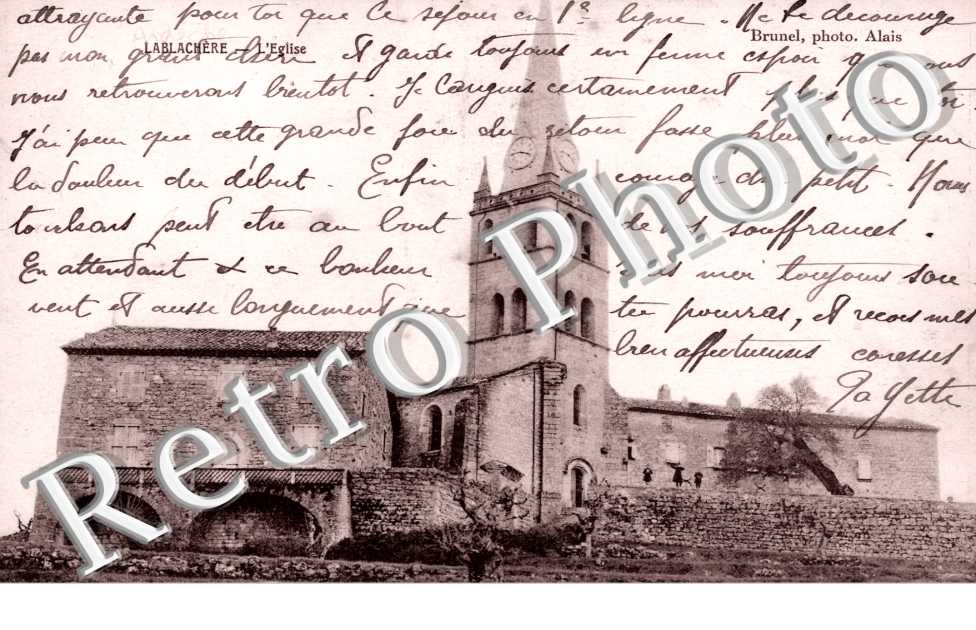 attrayante pour toi que ce séjour en 1re ligne. Ne te décourage
LABLACHÈRE - L'Eglise
Brunel, photo. Alais
pas mon grand chéri et garde toujours un ferme espoir que nous
nous retrouverons bientôt. Je languis certainement plus que toi.
J'ai peur que cette grande joie du retour fasse plus mal que
la douleur du début. Enfin courage du petit. Nous
touchons peut être au bout de nos souffrances.
En attendant ce bonheur moi toujours sou
vent et aussi longuement que tu pourras, et reçois mes
bien affectueuses caresses
Ta Yette
Retro Photo
Retro Photo